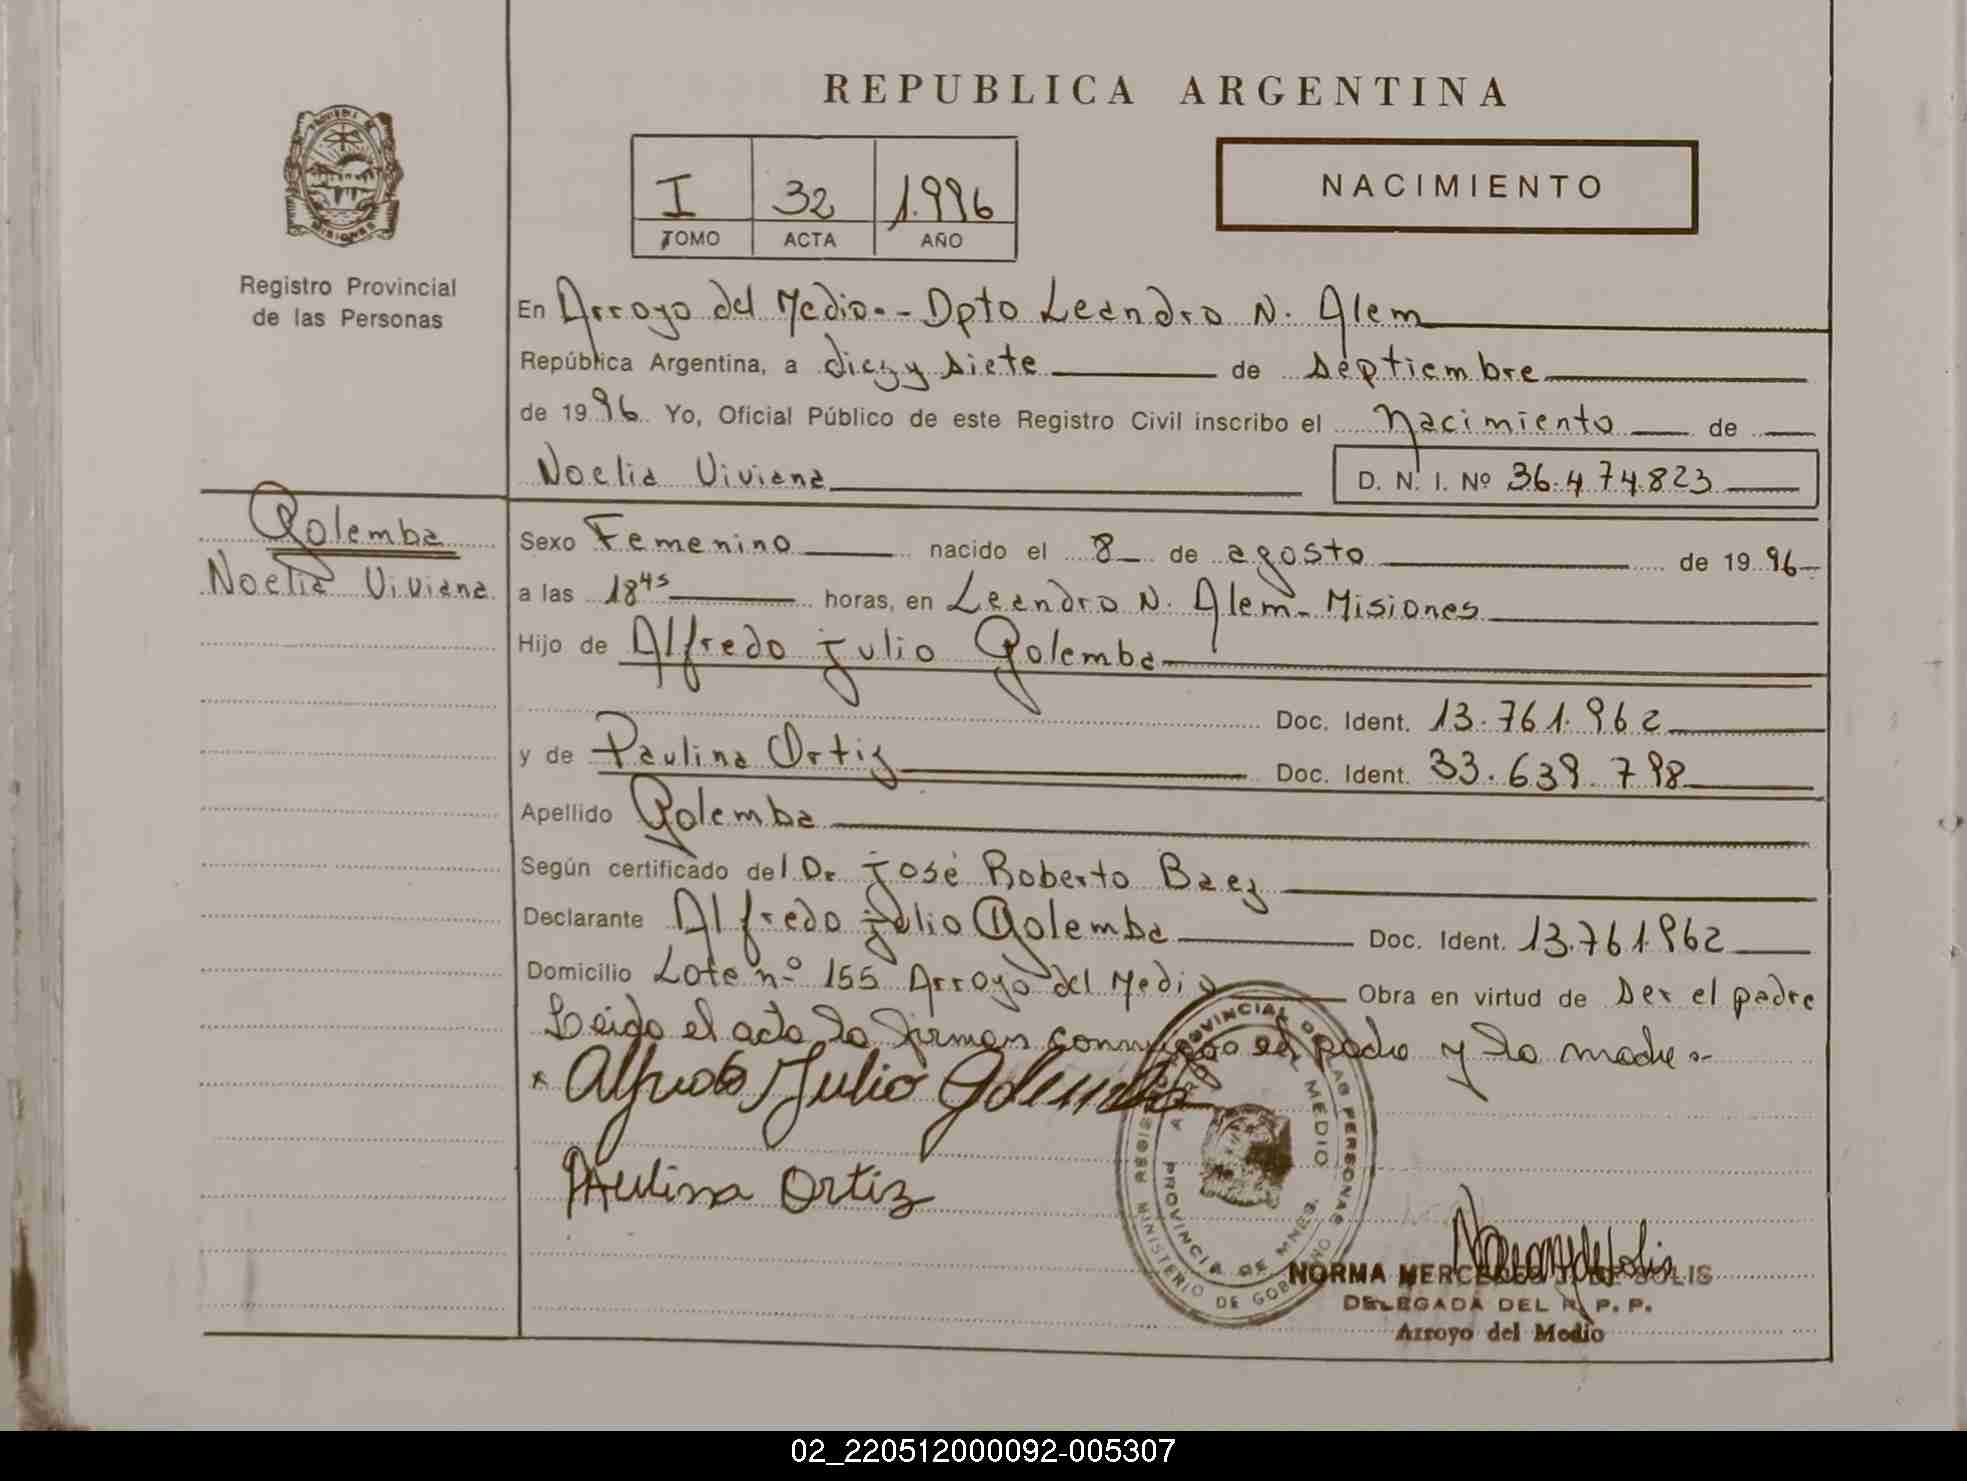 REPUBLICA ARGENTINA
I 32 1.996
TOMO ACTA AÑO
NACIMIENTO
MISIONES
Registro Provincial
de las Personas
En Arroyo del Medio.- Dpto Leandro N. Alem
República Argentina, a diez y siete de septiembre
de 1996 Yo, Oficial Público de este Registro Civil inscribo el Nacimiento de
Noelia Viviana D. N. I. Nº 36.474.823
Golemba
Noelia Viviana
Sexo Femenino nacido el 8 de agosto de 1996
a las 18 45 horas, en Leandro N. Alem - Misiones
Hijo de Alfredo Julio Golemba
Doc. Ident. 13.761.962
y de Paulina Ortiz Doc. Ident. 33.639.798
Apellido Golemba
Según certificado del Dr José Roberto Baez
Declarante Alfredo Julio Golemba Doc. Ident. 13.761.962
Domicilio Lote nº 155 Arroyo del Medio Obra en virtud de ser el padre
Leido el acta la firman conmigo el padre y la madre.-
x Alfredo Julio Golemba
Paulina Ortiz
REGISTRO PROVINCIAL DE LAS PERSONAS
ARROYO DEL MEDIO
PROVINCIA DE MNES.
MINISTERIO DE GOBIERNO
NORMA MERCEDES J. DE SOLIS
DELEGADA DEL R. P. P.
Arroyo del Medio
02_220512000092-005307